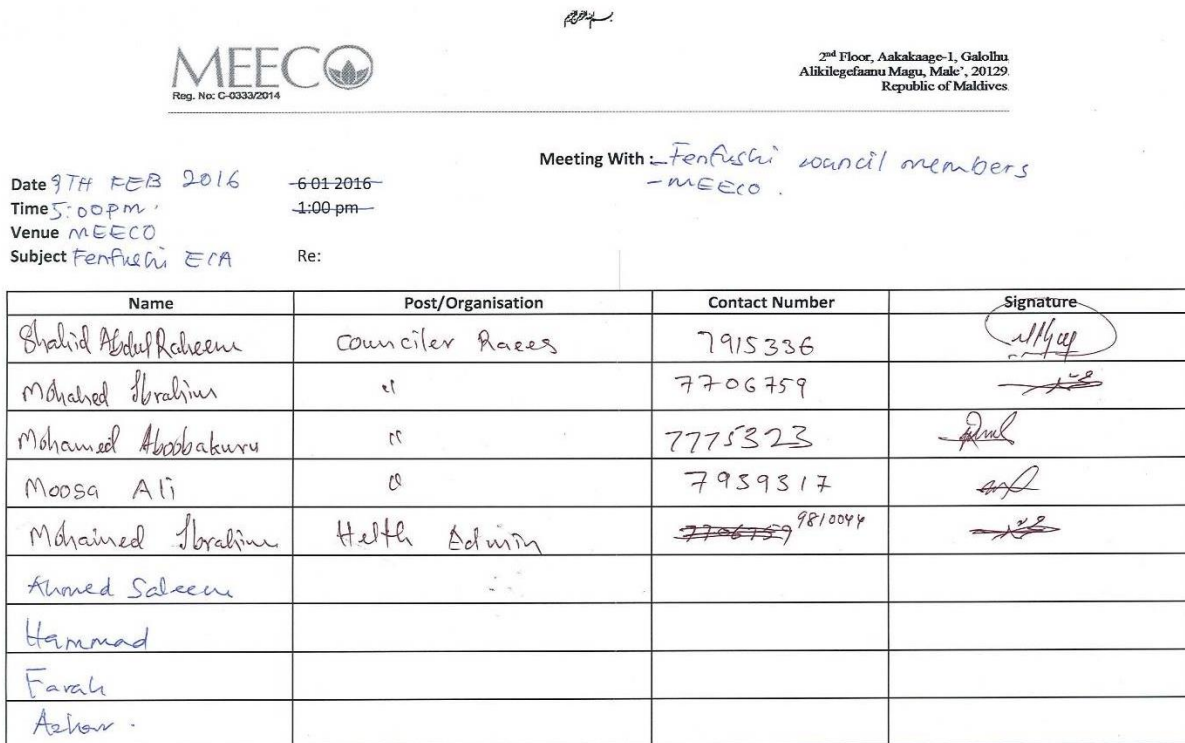 MEECO
Reg. No: C-0333/2014
2nd Floor, Aakakaage-1, Galolhu
Alikilegefaanu Magu, Male`, 20129.
Republic of Maldives.
Meeting With :- Fenfushi council members
- MEECO.
Date 9TH FEB 2016 6 01 2016
Time 5:00pm. 1:00 pm
Venue MEECO
Subject Fenfushi ECA Re:
Name Post/Organisation Contact Number Signature
Shahid Abdul Raheem Counciler Raees 7915336
Mohahed Ibrahim " 7706759
Mohamed Aboobakuru " 7775323
Moosa Ali " 7939317
Mohamed Ibrahim Helth Admin 7706759 9810044
Ahmed Saleem
Hammad
Farah
Azhar.